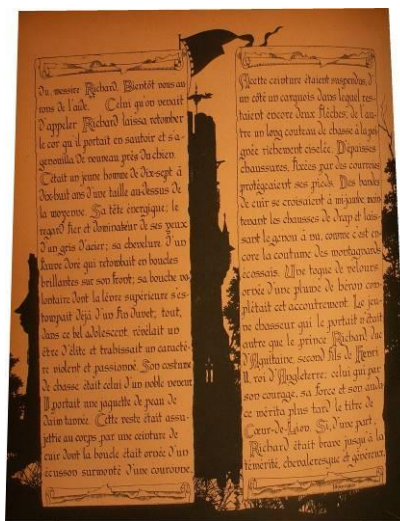 du messire Richard. Bientôt nous au
rons de l'aide. Celui qu'on venait
d'appeler Richard laissa retomber
le cor qu'il portait en sautoir et s'a-
genouilla de nouveau près du chien.
C'était un jeune homme de dix-sept à
dix-huit ans d'une taille au-dessus de
la moyenne. Sa tête énergique; le
regard fier et dominateur de ses yeux
d'un gris d'acier; sa chevelure d'un
fauve doré qui retombait en boucles
brillantes sur son front; sa bouche vo
lontaire dont la lèvre supérieure s'es-
tompait déjà d'un fin duvet; tout,
dans ce bel adolescent, révélait un
être d'élite et trahissait un caractè-
re violent et passionné. Son costume
de chasse était celui d'un noble veneur.
Il portait une jaquette de peau de
daim tannée. Cette veste était assu-
jettie au corps par une ceinture de
cuir dont la boucle était ornée d'un
écusson surmonté d'une couronne.
A cette ceinture étaient suspendus, d'
un côté un carquois dans lequel res-
taient encore deux flèches; de l'au-
tre un long couteau de chasse à la poi-
gnée richement ciselée. D'épaisses
chaussures, fixées par des courroies
protégeaient ses pieds. Des bandes
de cuir se croisaient à mi-jambe main
tenant les chausses de drap et lais-
sant le genou à nu, comme c'est en-
core la coutume des montagnards
écossais. Une toque de velours
ornée d'une plume de héron com-
plétait cet accoutrement. Le jeu-
ne chasseur qui le portait n'était
autre que le prince Richard duc
d'Aquitaine second fils de Henri
II, roi d'Angleterre; celui qui par
son courage, sa force et son auda
ce mérita plus tard le titre de
Cœur-de-Lion. Si, d'une part,
Richard était brave jusqu'à la
témérité, chevaleresque et généreux,